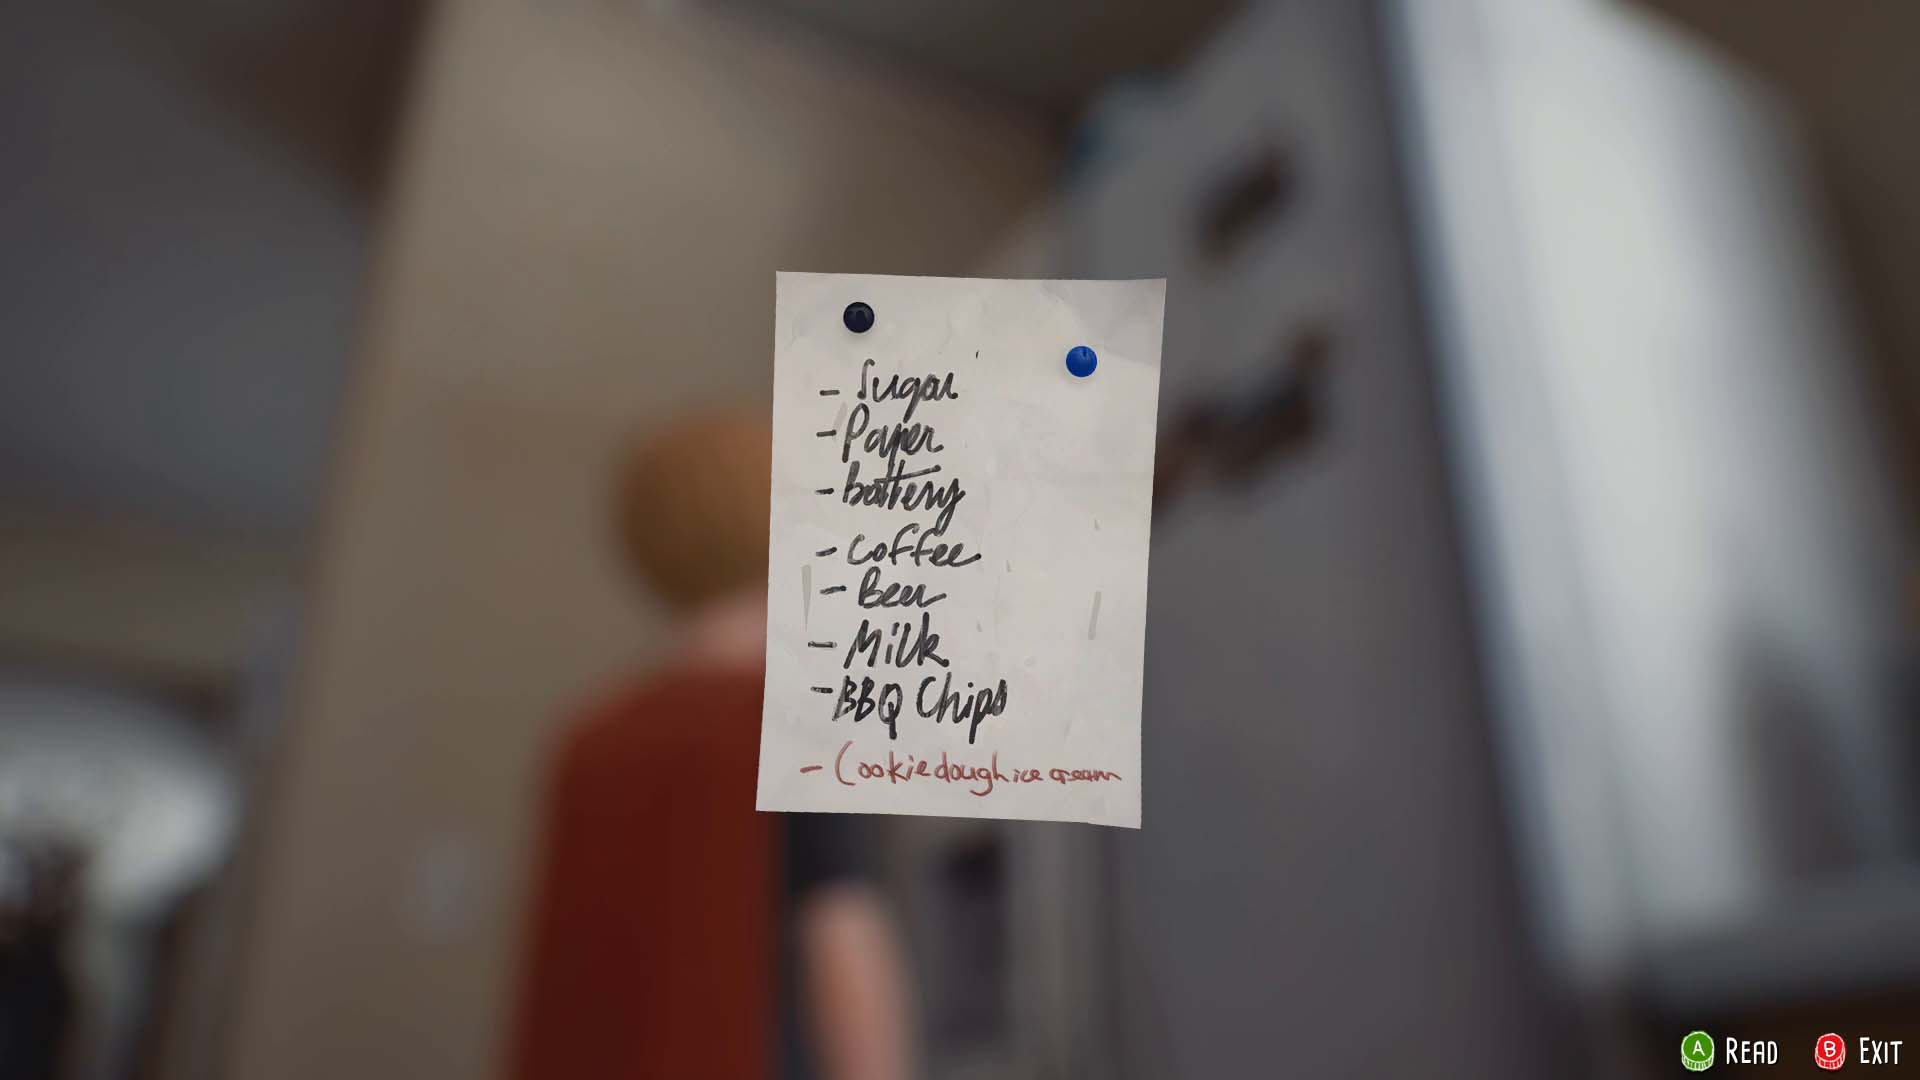 - Sugar
- Paper
- battery
- Coffee
- Beer
- Milk
- BBQ Chips
- Cookie dough ice cream
A READ B EXIT